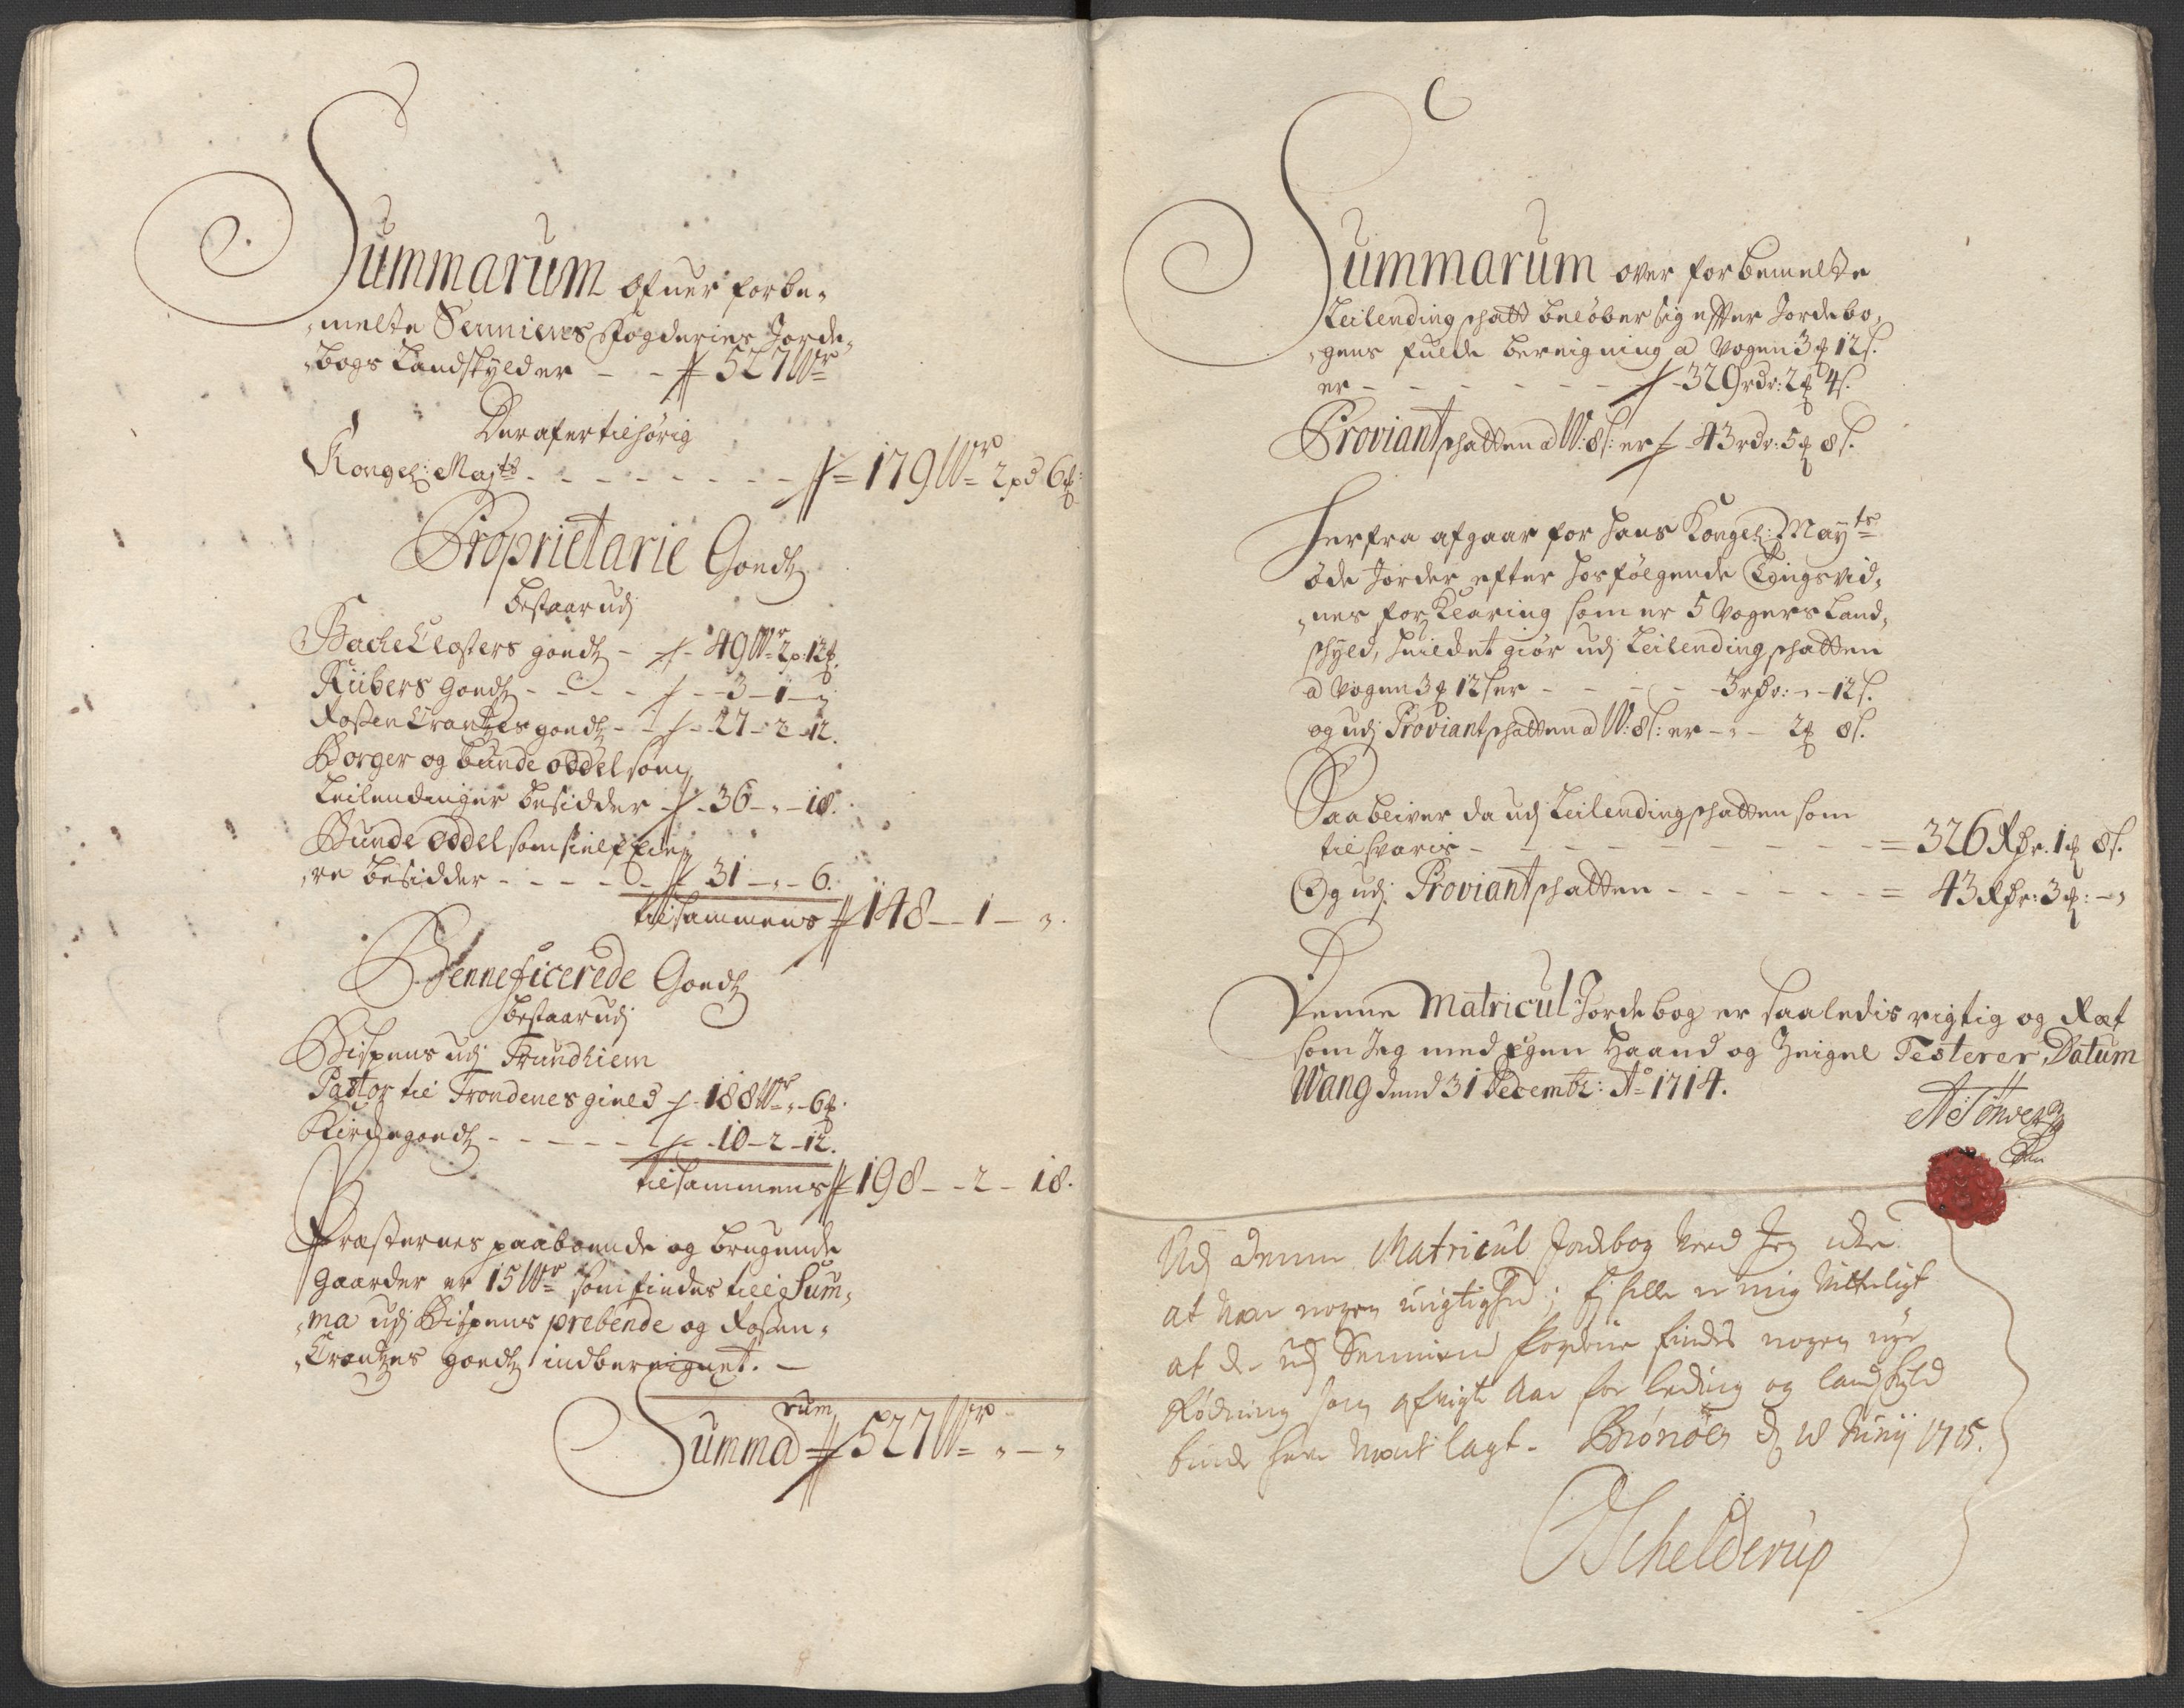 Summarum ofuer forbe-
melte Senniens Fogderies Jorde-
bogs Landskyld er - - 527 Wr
Der af er tilhørig
Kongel: Majts - - - - - - - - = 179 Wr 2 pd 6 ℔:
Proprietarie Goedtz
bestaar udj
Bache Closters goedtz - - 49 Wr 2 p: 12 ℔.
Rübers Goedtz - - - - - 3 - 1 - „
Rosen Crantzes goedtz - - 27 - 2 - 12.
Borger og bunde oddel som
Leilendinger besidder - 36 - „ - 18.
Bunde oddel som sielf Eie-
re besidder - - - - - 31 - „ - 6.
tilsammens 148 - 1 - „.
Benneficerede Goedtz
bestaar udj
Bispens udj Trundhiem
Pastor til Trondenes gield - 188 Wr „ - 6 ℔.
Kirchegoedtz - - - - - 10 - 2 - 12.
tilsammens 198 - - 2 - 18.
Præsternes paaboende og brugende
Gaarder er 15 Wr som findes till Sum-
ma udj Bispens prebende og Rosen-
Crantzes goedtz indbereignet. -
Summarum 527 Wr „ - „
Summarum over forbemelte
Leilending schatt beløber sig effter Jordebo-
gens fulde bereigning a Vogen 3 ℔ 12 s.
er - - - - - - - 329 rdr: 2 ℔ 4 s.
Proviant schatten a W: 8 s: er 43 rdr: 5 ℔ 8 s.
Herfra afgaar for Hans Kongel: Mayts
øde Jorder efter hosfølgende Tingsvid-
nes forklaring som er 5 Vogers Land-
schyld, huilchet giør udj Leilending schatten
a Vogen 3 ℔ 12 s er - - - - 3 rdr: „ - 12 s.
og udj Proviant schatten a W: 8 s: er - „ - 2 ℔ 8 s.
Saa bliver da udj Leilending schatten som
tilsvaris - - - - - - - - - = 326 Rdr. 1 ℔ 8 s.
Og udj Proviant schatten - - - - - - = 43 Rdr: 3 ℔: - „
Denne Matricul Jordebog er saaledis rigtig og Ræt
som Jeg med Egen Haand og Zeignet Testerer, Datum
Wang dend 31 Decembr: Ao 1714.
Udj denne Matricul Jordebog veed Jeg icke
at være nogen urigtighed; Ej heller er mig vitterligt
at der udj Sennien Fogderie findes nogen nye
Rødning som afvigte Aar for leding og landskyld
burde have værit lagt. Brønøen d 18 Junij 1715.
Schelderup